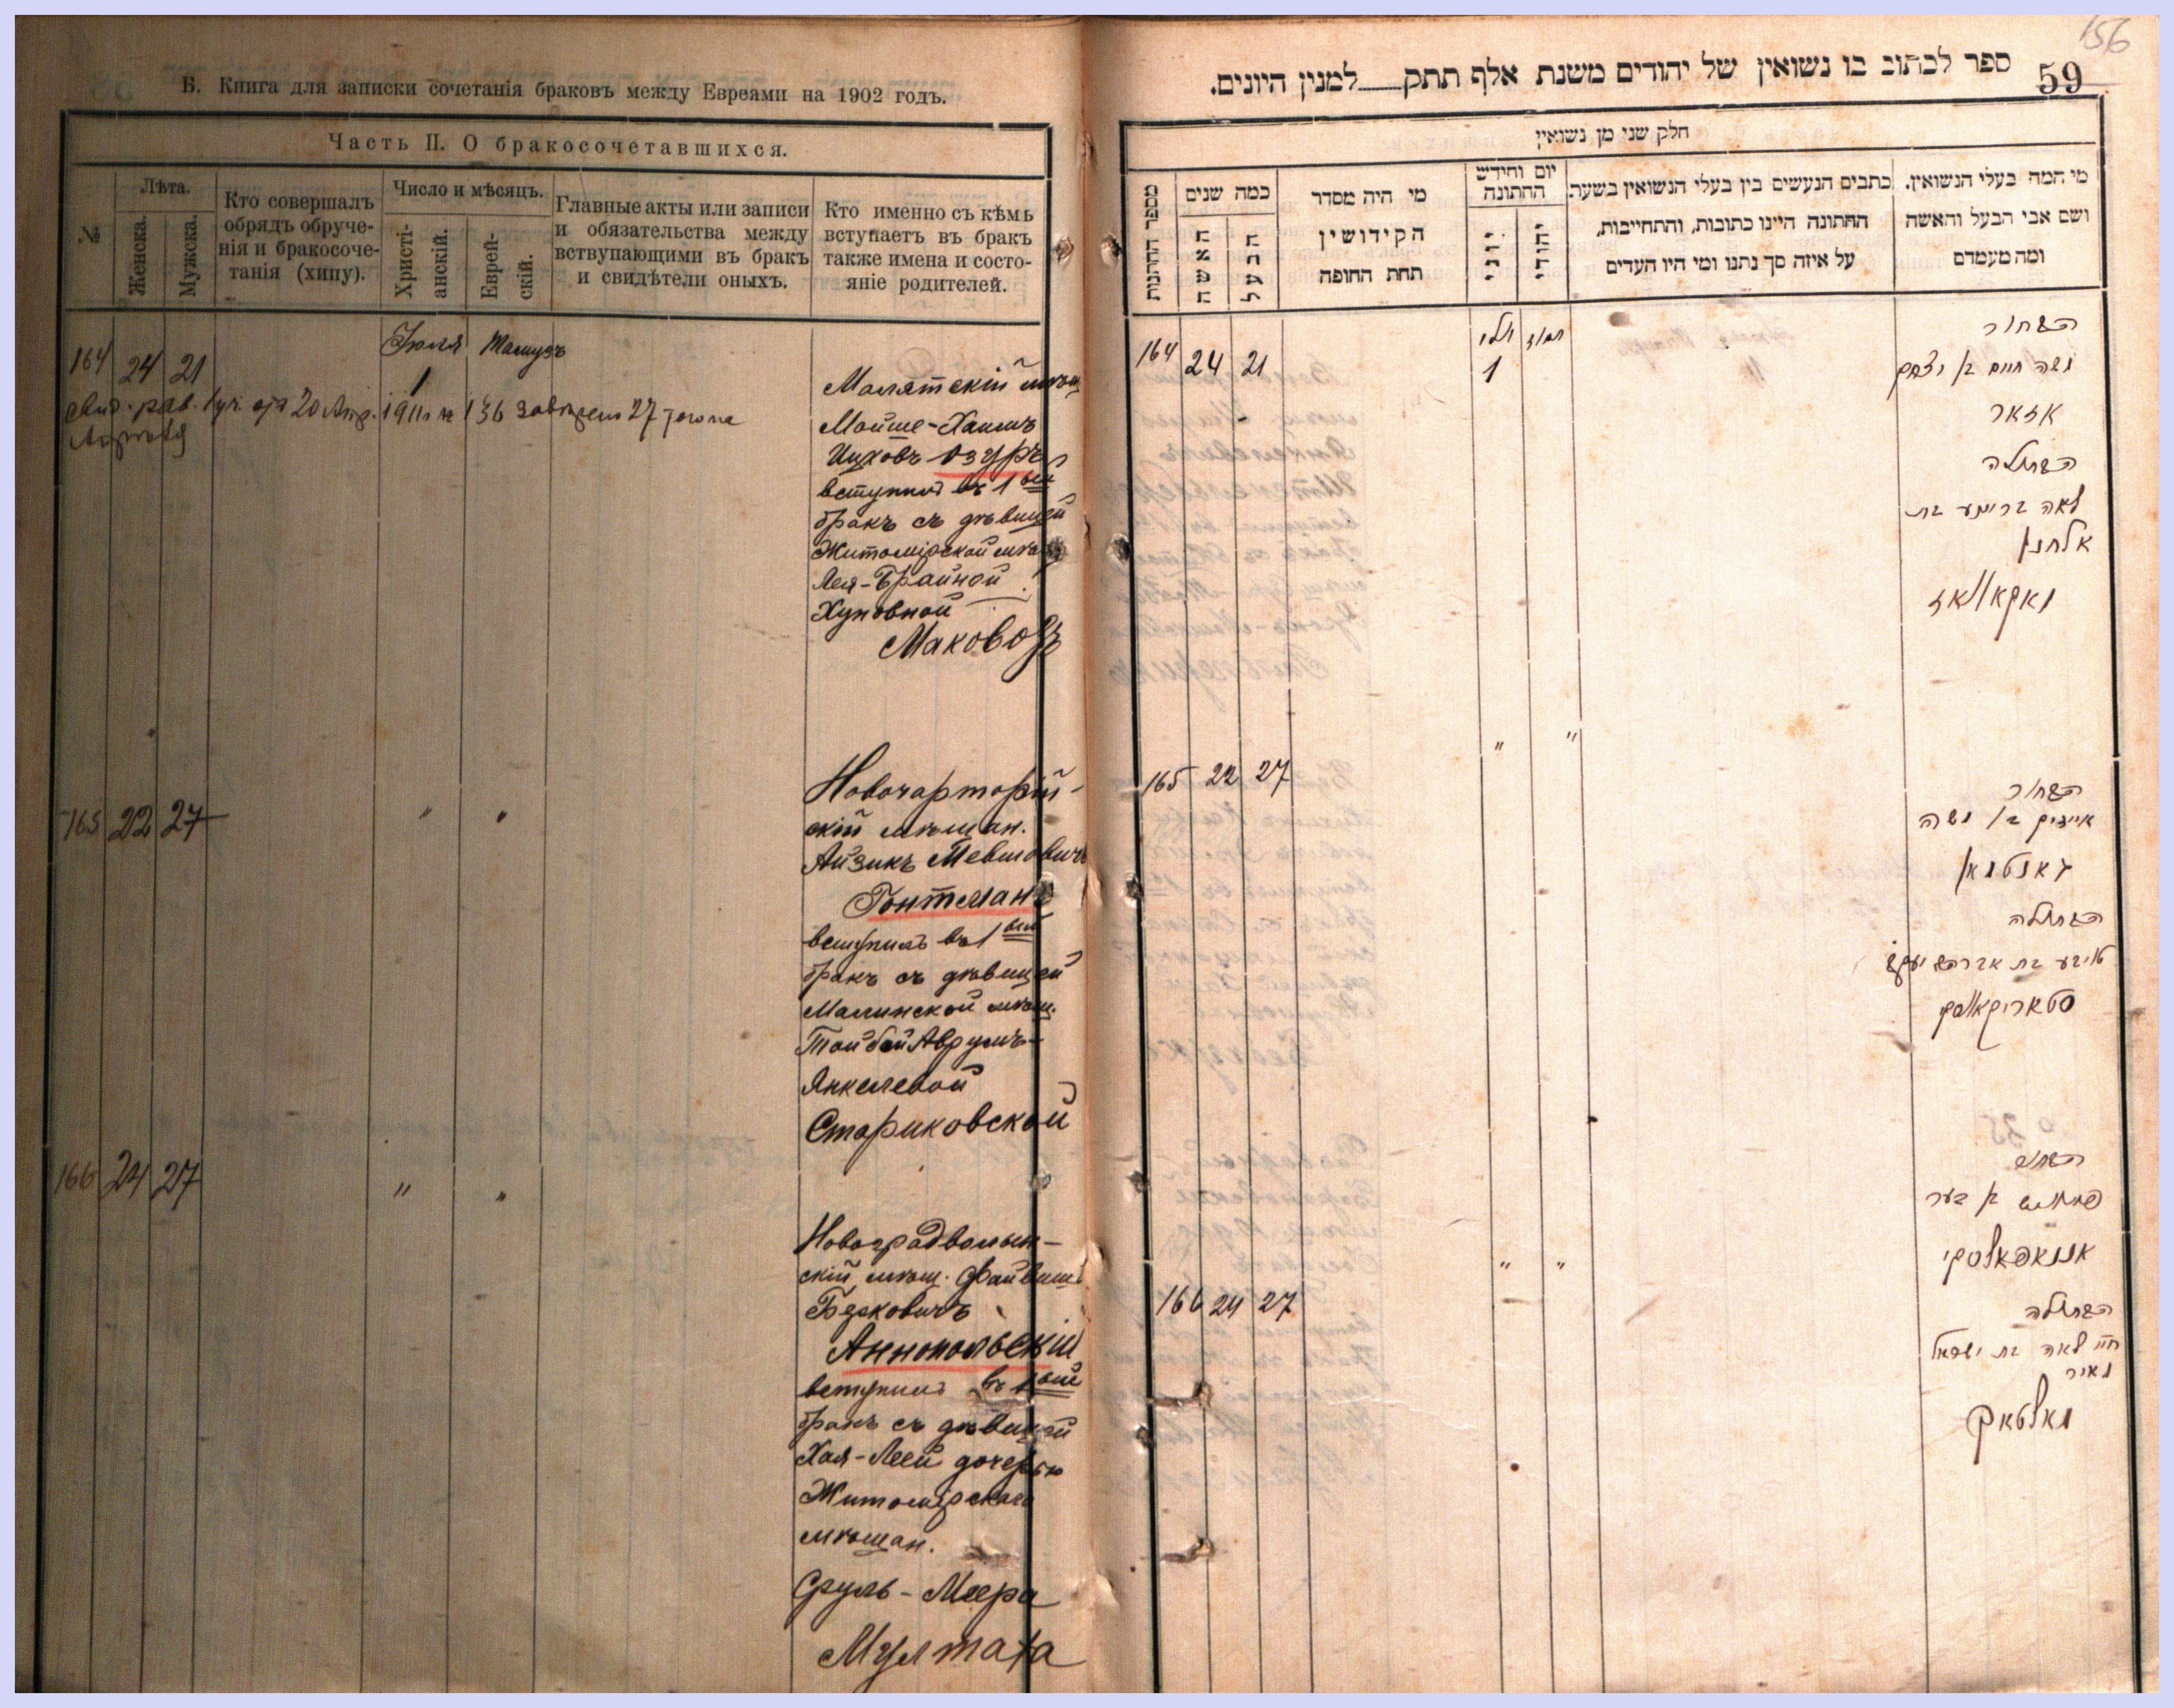 Б. Книга для записки сочетанія браковъ между Евреями на 1902 годъ.
Часть II. О бракосочетавшихся.
№
Лѣта.
Женска.
Мужска.
Кто совершалъ
обрядъ обруче-
нія и бракосоче-
танія (хипу).
Число и мѣсяцъ.
Христі-
анскій.
Еврей-
скій.
Главные акты или записи
и обязательства между
вступающими въ бракъ
и свидѣтели оныхъ.
Кто именно съ кѣмъ
вступаетъ въ бракъ
также имена и состо-
яніе родителей.
Іюля Тамузъ
164 24 21 1
20 Апр. 1911 г № 136 27
Малятскій мѣщ
Мойше-Хаимъ
Ицковъ Озуръ
вступилъ въ 1 вый
бракъ съ дѣвицей
Житомірской мѣщ
Лея-Брайной
Хуновной
Маковозъ
165 22 27 " "
Новочарторій-
скій мѣщан.
Айзикъ Мевшовичъ
Гонтманъ
вступилъ въ 1 вый
бракъ съ дѣвицей
Малинской мѣщ.
Тойбой Аврумъ-
Янкелевой
Стариковской
166 24 27 " "
Новоградволын-
скій мѣщ. Файвишъ
Берковичъ
Аннопольскій
вступилъ въ 1 вый
бракъ съ дѣвицей
Хая-Леей дочерью
Житомірскаго
мѣщан.
Сруль-Меера
Мултака
156
59
ספר לכתוב בו נשואין של יהודים משנת אלף תתק למנין היונים.
חלק שני מן נשואין
מספר החתונות
כמה שנים
האשה
הבעל
מי היה מסדר
הקידושין
תחת החופה
יום וחידש
החתונה
יוני
יהודי
כתבים הנעשים בין בעלי הנשואין בשעת
החתונה היינו כתובות, והתחייבות,
על איזה סך נתנו ומי היו העדים
מי המה בעלי הנשואין.
ושם אבי הבעל והאשה
ומה מעמדם
יולי תמוז
164 24 21 1
הבחור
משה חיים בן יצחק
אזאר
הבתולה
לאה בריינע בת
אלחנן
מאקאוואז
" "
165 22 27
הבחור
אייזיק בן משה
גאנטמאן
הבתולה
טויבע בת אברהם יעקב
סטאריקאווסקי
הבחור
פייוויש בן בער
אננאפאלסקי
" "
166 24 27
הבתולה
חיי לאה בת ישראל
מאיר
מאלטאק